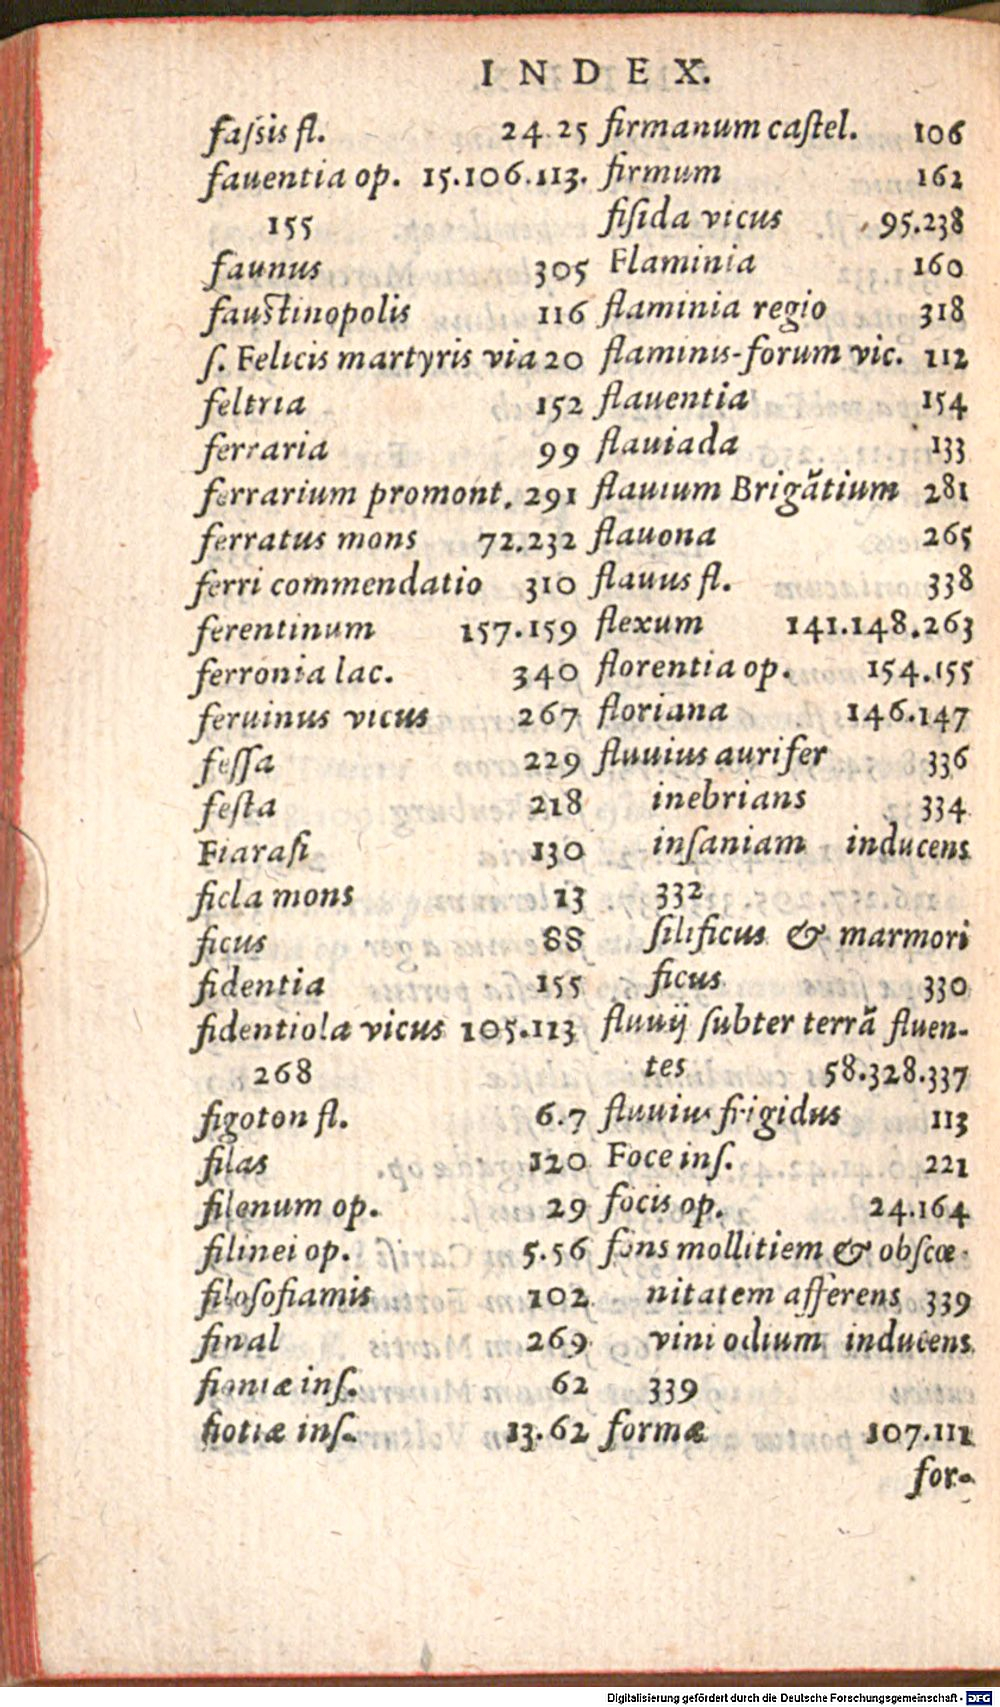 INDEX.
faſsis fl. 24.25
fauentia op. 15.106.113.
155
faunus 305
fauſtinopolis 116
ſ. Felicis martyris via 20
feltria 152
ferraria 99
ferrarium promont. 291
ferratus mons 72.232
ferri commendatio 310
ferentinum 157.159
ferronia lac. 340
feruinus vicus 267
feſſa 229
feſta 218
Fiaraſi 130
ficla mons 13
ficus 88
fidentia 155
fidentiola vicus 105.113
268
figoton fl. 6.7
filas 120
filenum op. 29
filinei op. 5.56
filoſofiamis 102
final 269
fioniæ inſ. 62
fiotiæ inſ. 13.62
firmanum caſtel. 106
firmum 162
fiſida vicus 95.238
Flaminia 160
flaminia regio 318
flaminis-forum vic. 112
flauentia 154
flauiada 133
flauium Brigãtium 281
flauona 265
flauus fl. 338
flexum 141.148.263
florentia op. 154.155
floriana 146.147
fluuius aurifer 336
inebrians 334
inſaniam inducens
332
ſilificus & marmori
ficus 330
fluuij ſubter terrã fluen-
tes 58.328.337
fluuius frigidus 113
Foce inſ. 221
focis op. 24.164
fons mollitiem & obſcœ-
nitatem afferens 339
vini odium inducens
339
formæ 107.111
for-
Digitalisierung gefördert durch die Deutsche Forschungsgemeinschaft - DFG